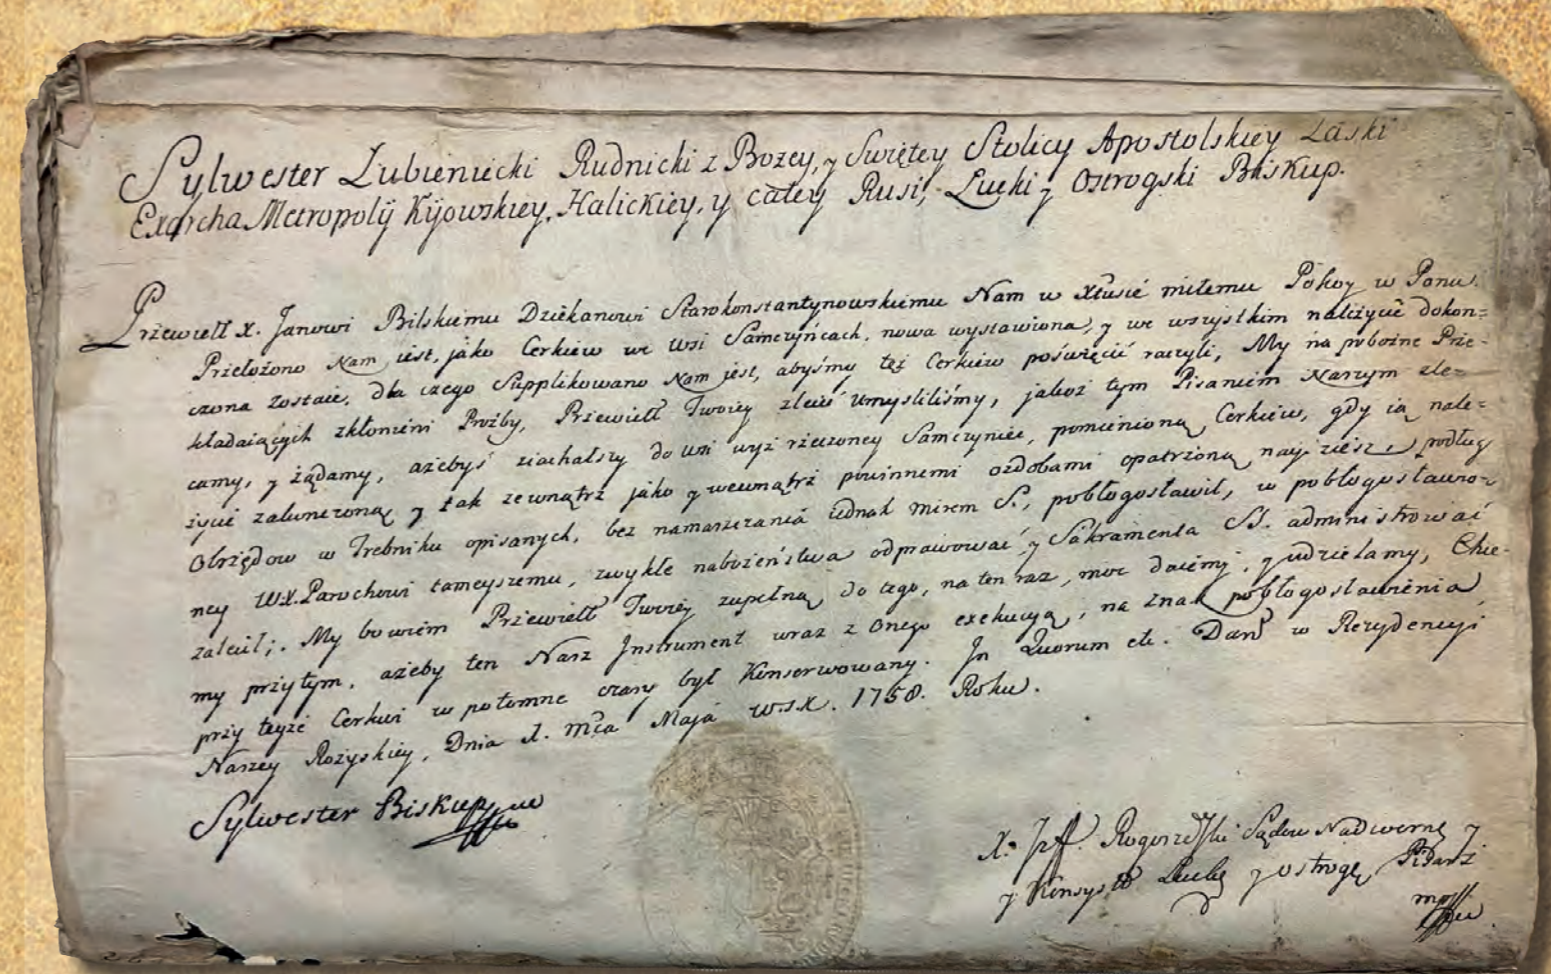 Sylwester Lubieniecki Rudnicki z Bozey, y Swiętey Stolicy Apostolskiey Łaski
Exarcha Metropolÿ Kÿowskiey, Halickiey, y całey Rusi, Łucki y Ostrogski Biskup.
Przewielł X. Janowi Bilskiemu Dziekanowi Starokonstantynowskiemu Nam w Xtusie miłemu Pokoy w Panu.
Przełożono Nam iest, jako Cerkiew we Wsi Samczyńcach, nowa wystawiona, y we wszystkim należycie dokon=
czona zostaie, dla czego Supplikowano Nam jest, abyśmy tęż Cerkiew poświęcić raczyli, My na pobożne Prze=
kładaiących zkłonieni Proźby, Przewielł Twoiey zlecić umysliliśmy, jakoż tym Pisaniem Naszym zle=
camy, y żądamy, ażebyś ziachałszy do wsi wyż rzeczoney Samczyniec, pomienioną Cerkiew, gdy ią nale=
życie zakończoną y tak zewnątrz jako y wewnątrz powinnemi ozdobami opatrzoną nayдziesz, podług
Obrzędow w Trebniku opisanych, bez namaszczania iednak mirem S., pobłogosławił, w pobłogosławio=
ney W.X. Parochowi tameyszemu, zwykłe nabożeństwa odprawować, y Sakramenta SS. administrować
zalecił; My bowiem Przewielł Twoiey zupełną do tego, na ten raz, moc daiemy, y udzielamy, Chce=
my przytym, ażeby ten Nasz Instrument wraz z onego exekucyą, na znak pobłogosławienia
przy teyże Cerkwi w potomne czasy był Konserwowany. In Quorum etc. Dan w Rezydencyi
Naszey Rożyskiey, Dnia 1. Mca Maja w.s.x. 1758. Roku.
Sylwester Biskup mp
X. Rogoszewski Sądow Nadworne y
y Konsysto Łucke y Ostrogs Pisarz
mp